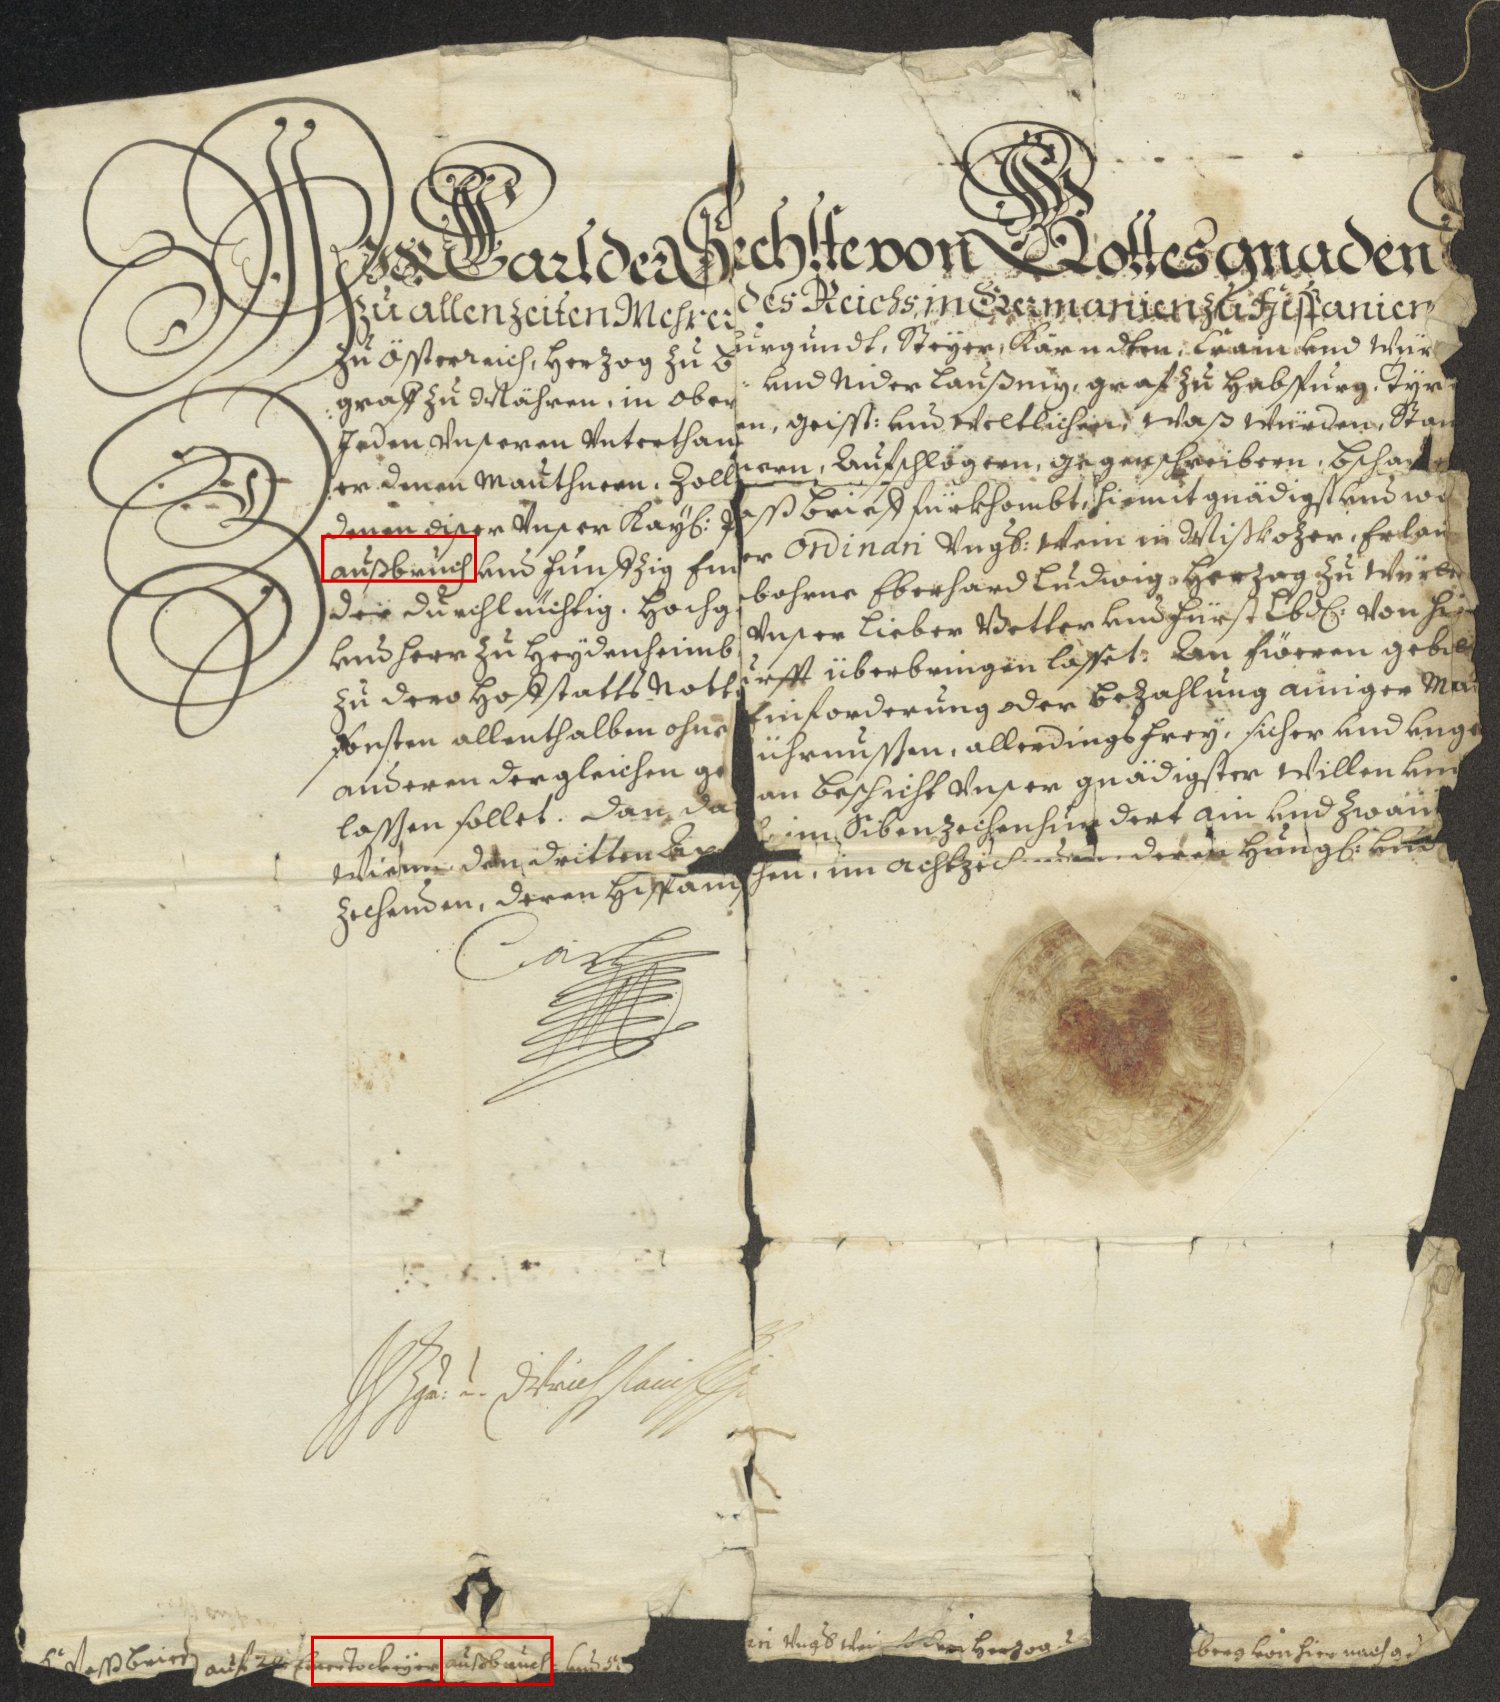 WIR Carl der Sechste von Gottes gnaden
zu allen zeiten Mehrer des Reichs, in Germanien, zu Hispanien
zu Össterreich, Herzog zu Burgundt, Steyer, Kärndten, Crain vnd Wür
graff zu Mähren, in Ober vnd Nider Laußniz, graf zu Habspurg, Tyr
Jeden Vnseren Vnterthan en, geisst: vnd Weltlichen, waß Würden, Stan
denen Mauthnern, Zoll nern, Aufschlögern, gegenschreibern, bschau
denen diser Vnser Kayß: P aßbrieff fürkhombt, hiemit gnädigst vnd
außbruch vnd Funffzig Em er Ordinari Vngß: Wein in Mißkozer, Erlau
der durchleüchtig, Hochg ebohrne Eberhard Ludwig Herzog zu Würt
vnd Herr zu Heydenheimb Vnser Lieber Vetter vnd Fürst Lbd: von hi
zu dero Hoffstatts Nott urfft überbringen lasset: An
sonsten allenthalben ohne Einforderung oder bezahlung ainiger Mau
anderen dergleichen ge allerdings frey, sicher vnd
lassen sollet. Dan da an beschicht Vnser gnädigster Willen vnd
Wienn den dritten im Sibenzechenhundert ain vnd zwain
zechenden, deren Hispani schen, im achtzech deren Hungß: vnd
Carl
Passbrieff auf 2 Tockeyer außbruch vnd 5
ri Vngß Wei Herzog
berg von hier nach